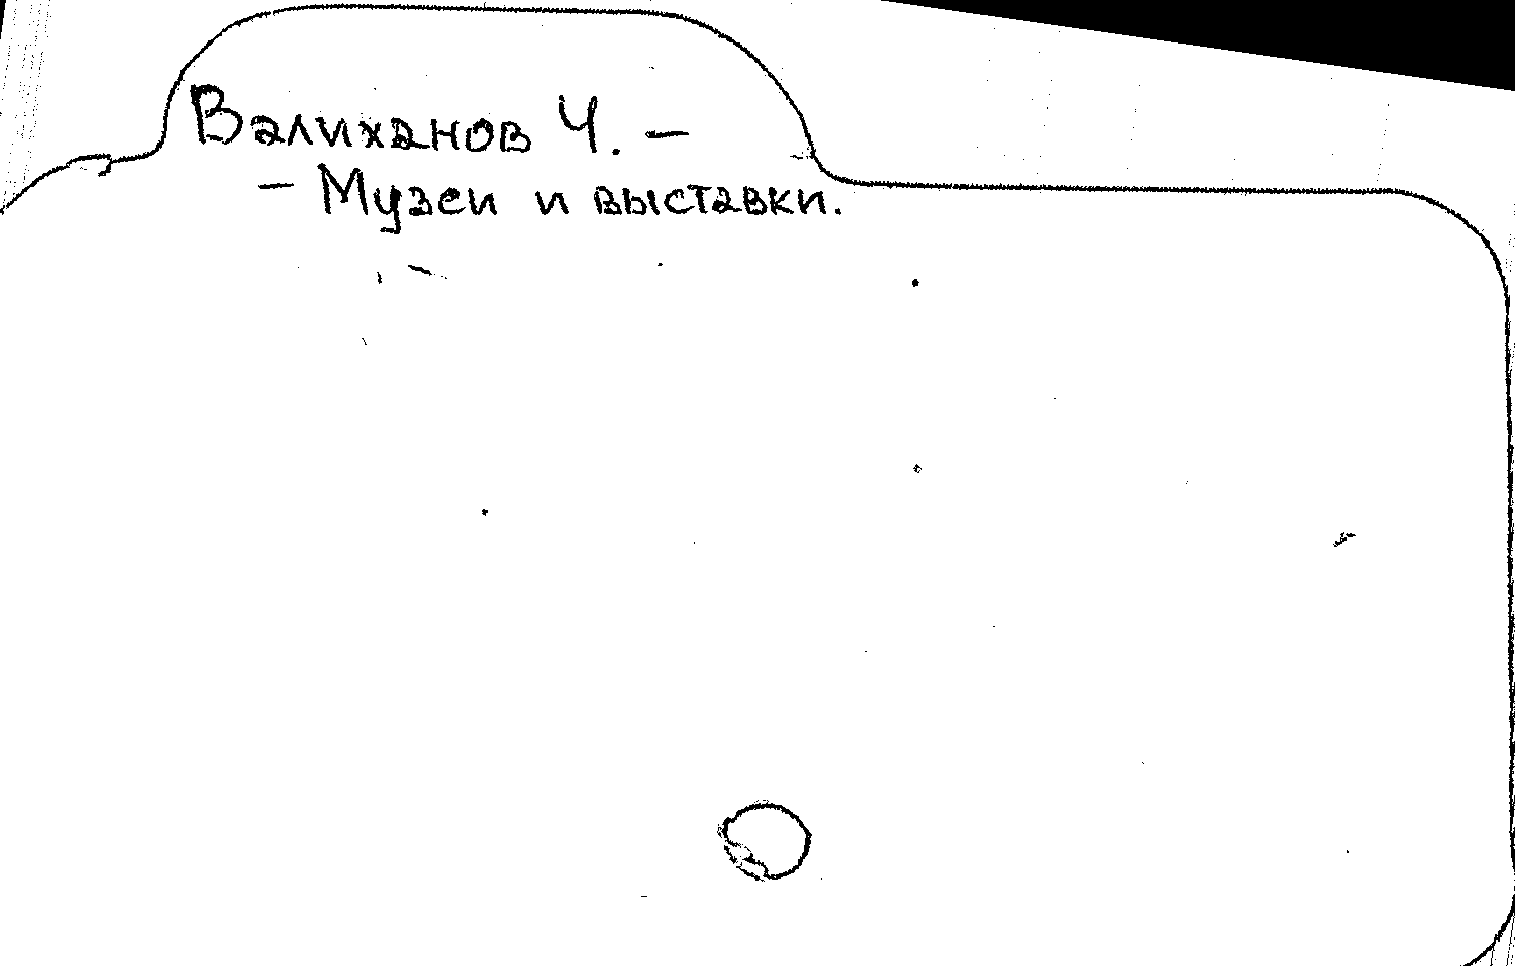 Валиханов Ч. —
— Музеи и выставки.